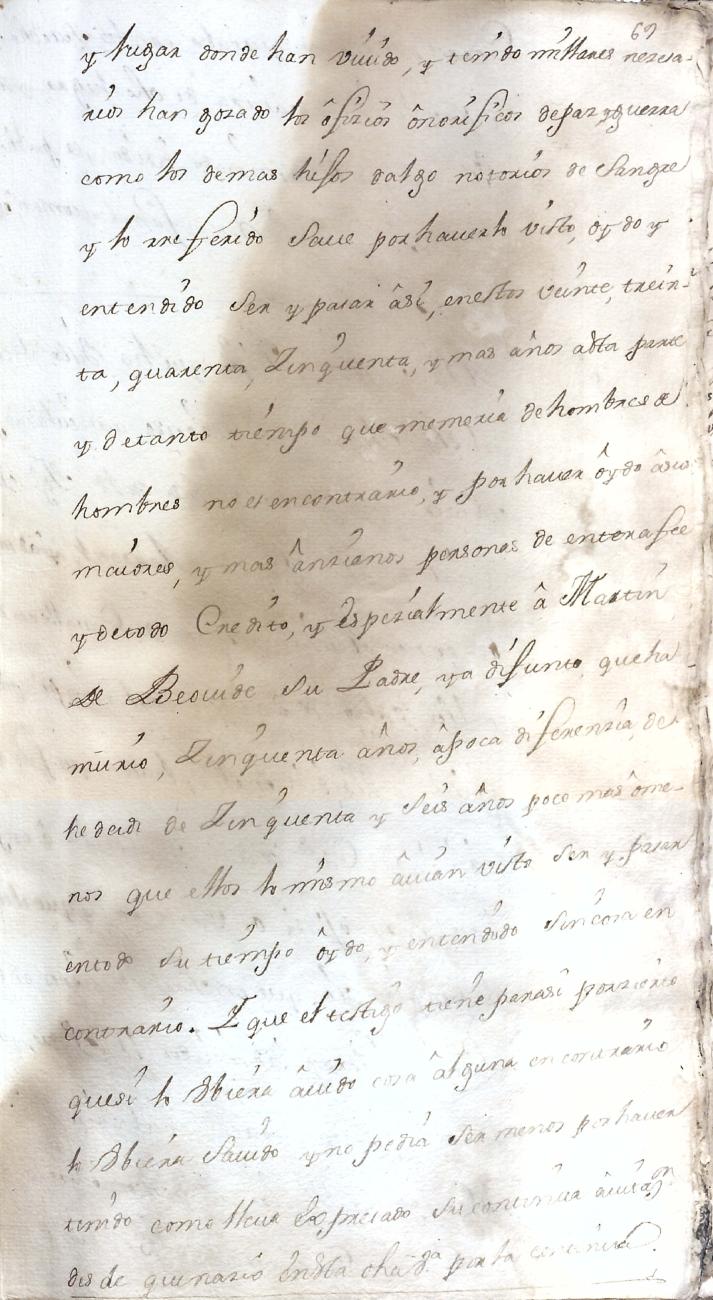 69
y lugar donde han viuido, y tenido millares nezesa-
rios han gozado los ôfizios ônorificos de paz y guerra
como los demas hisos dalgo notorios de Sangre
y lo rreferido Saue por hauerlo visto, oydo y
entendido Ser y pasar âsi, en estos veinte, trein-
ta, quarenta, Zinquenta, y mas años a esta parte
y de tanto tiempo que memoria de hombres a
hombres no es encontrario, y por hauer ôydo âsus
maiores, y mas ânzianos personas de entera fee
y de todo Credito, y êspezialmente â Martin
de Beouide su Padre, ya difunto, que ha
murio, Zinquenta años, âpoca diferenzia, de
hedad de Zinquenta y Seis años poco mas ôme-
nos que ellos lo mismo âuian visto Ser y pasar
en todo su tiempo ôydo, y entendido sin cosa en
contrario. I que el testigo tiene parasi por zierto
que si lo Vbiera âuido cosa âlguna en contrario
lo Vbiera Sauido y no podia Ser menos por hauer
tenido como lleua Expresado su continua
desde quinario en dha por la